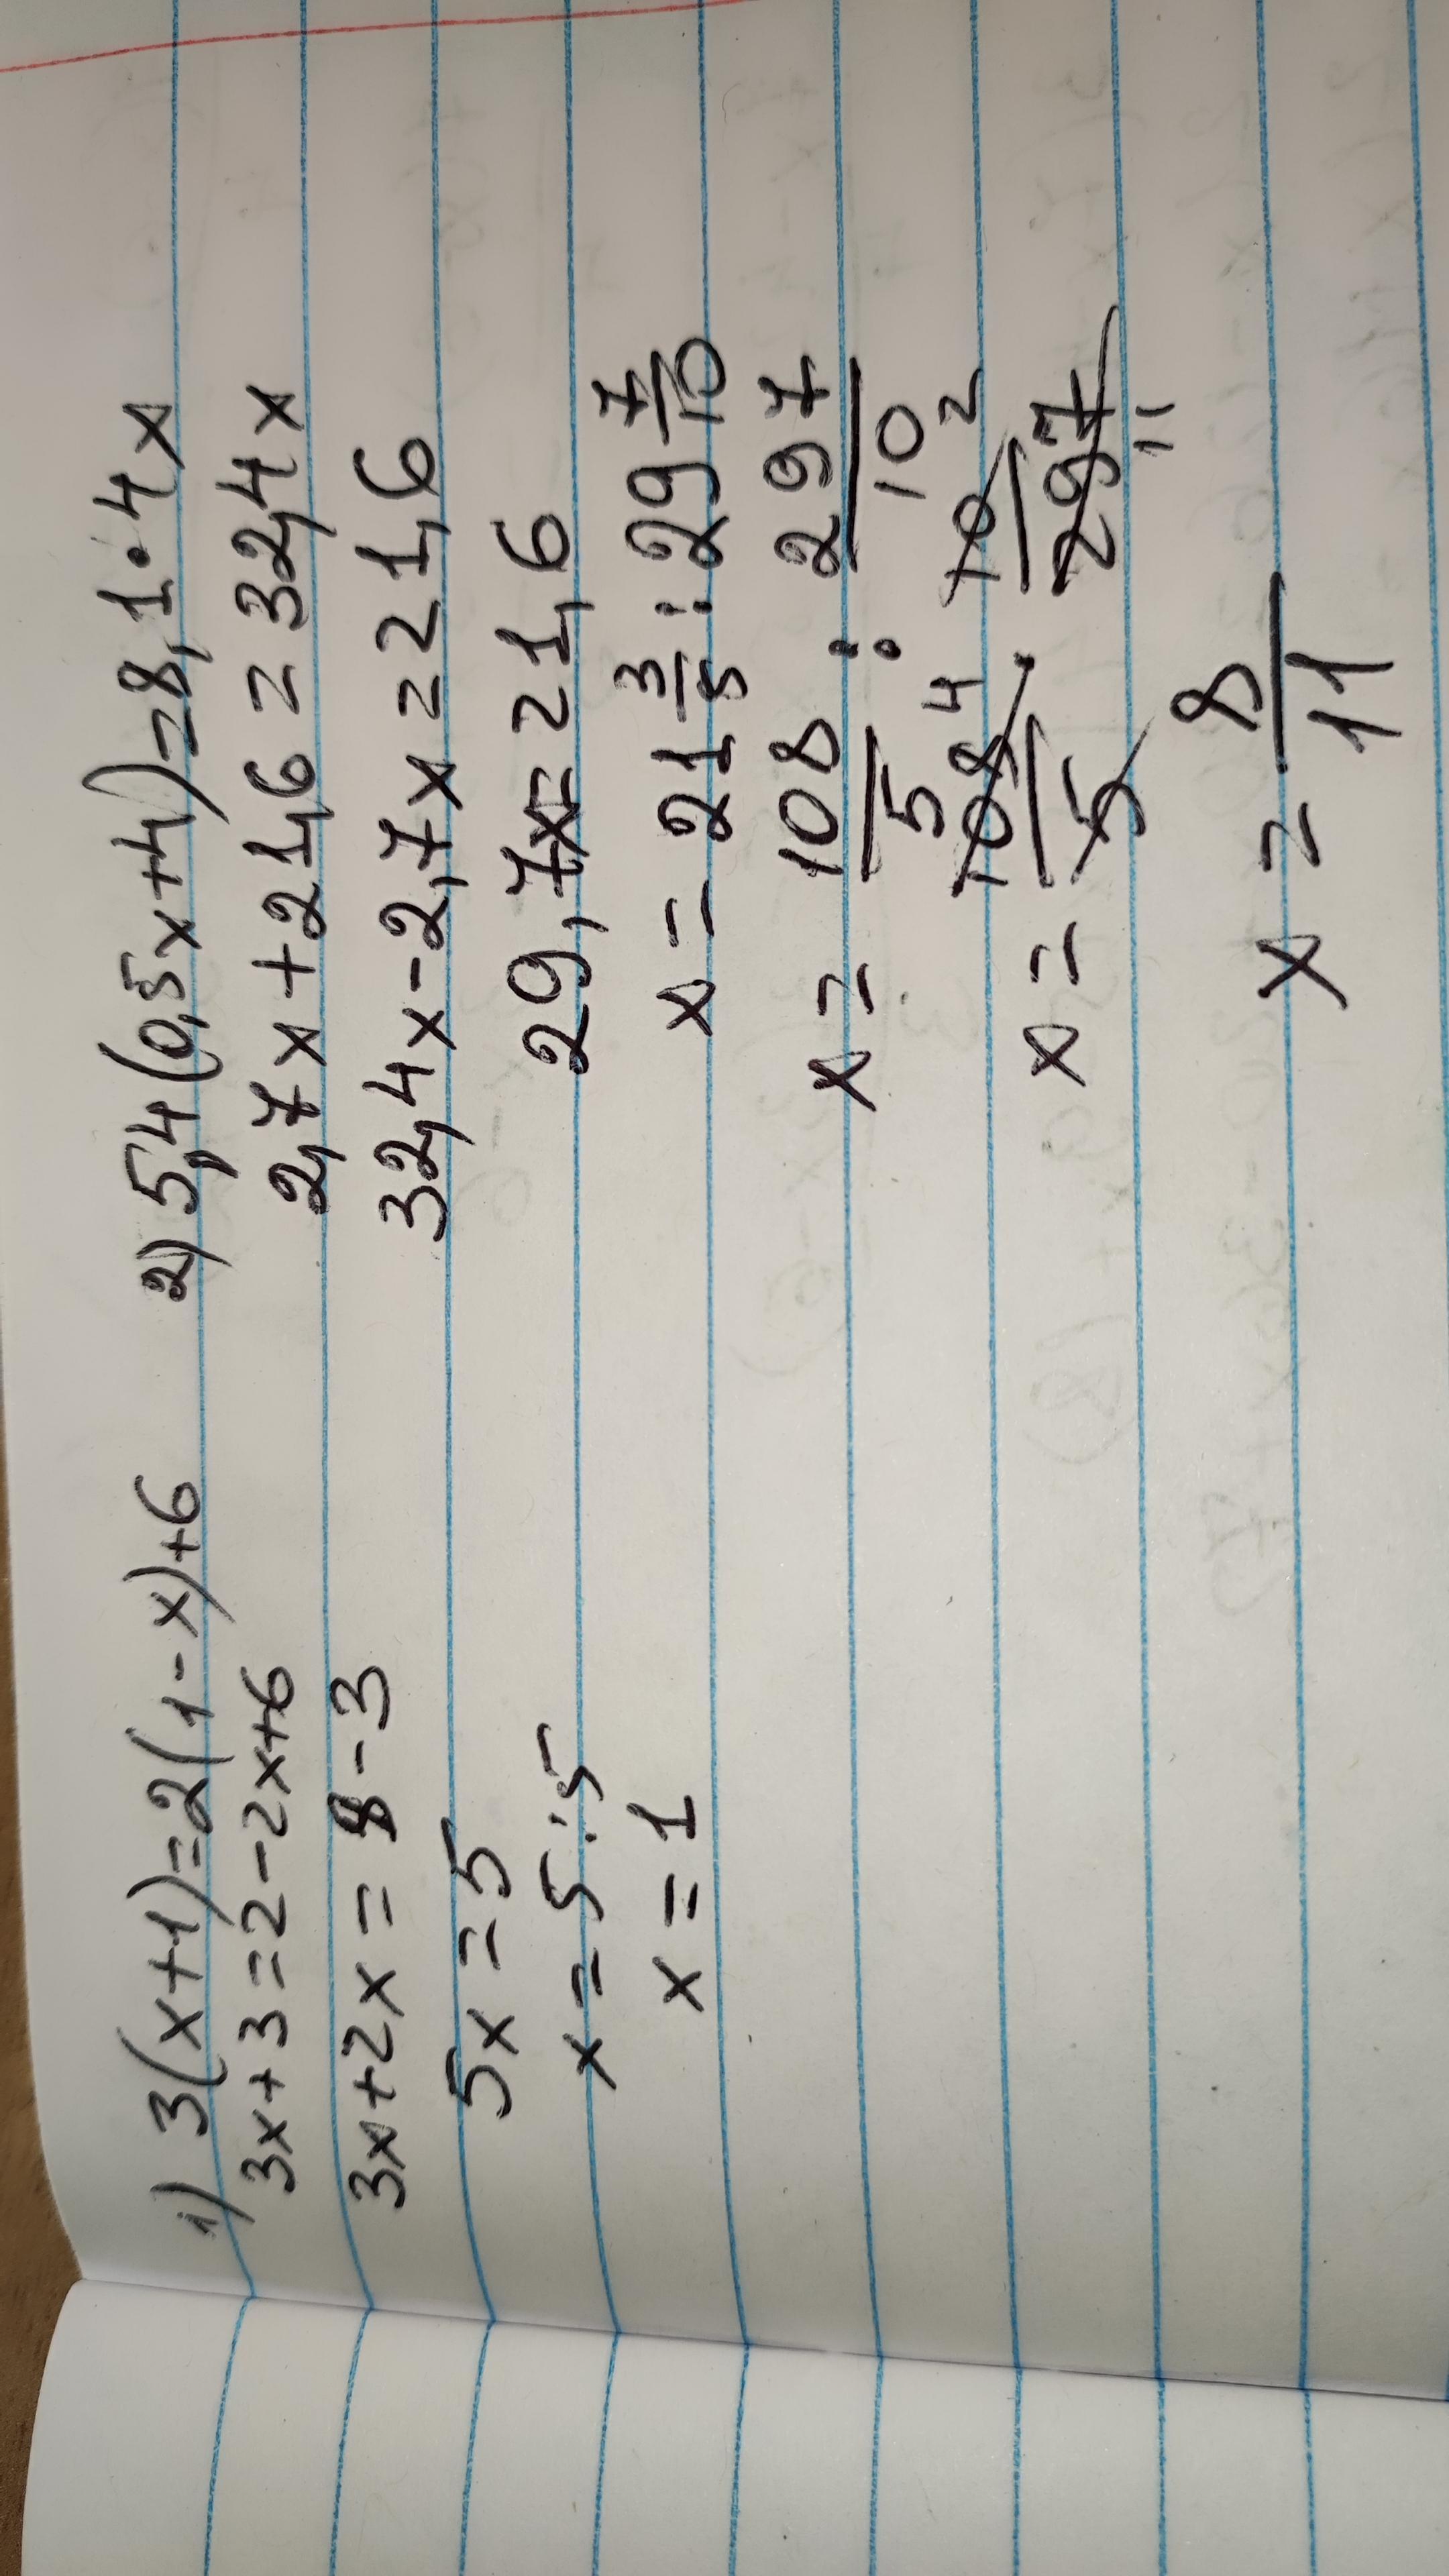 1) 3(x+1)=2(1-x)+6
3x+3=2-2x+6
3x+2x=8-3
5x=5
x=5:5
x=1
2) 5,4(0,5x+4)=8,1·4x
2,7x+21,6=32,4x
32,4x-2,7x=21,6
29,7x=21,6
x=21 3/5 : 29 7/10
x= 108/5 : 297/10
x= 108 4/5 · 10 2/297 11
x= 8/11